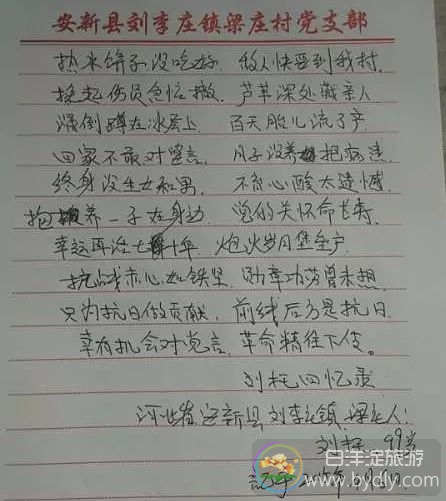 安新县刘李庄镇梁庄村党支部
热水饼子没吃好 敌人快要到我村
挽起伤员急忙撤 芦苇深处藏亲人
滑倒蹲在冰层上 百天胎儿流了产
回家不敢对娘言 月子没养把病患
终身没生女和男 不育心酸太遗憾
抱养一子在身边 党的关怀命长寿
幸运再活七十年 炮火岁月堡垒户
抗战赤心如铁坚 功章功劳曾未想
只为抗日做贡献 前线后方是抗日
幸有机会对党言 革命精往下传。
刘 回忆录
河北省安新县刘李庄镇 梁庄人:
刘 99岁
记于2015年
白洋淀旅游
www.bydly.com